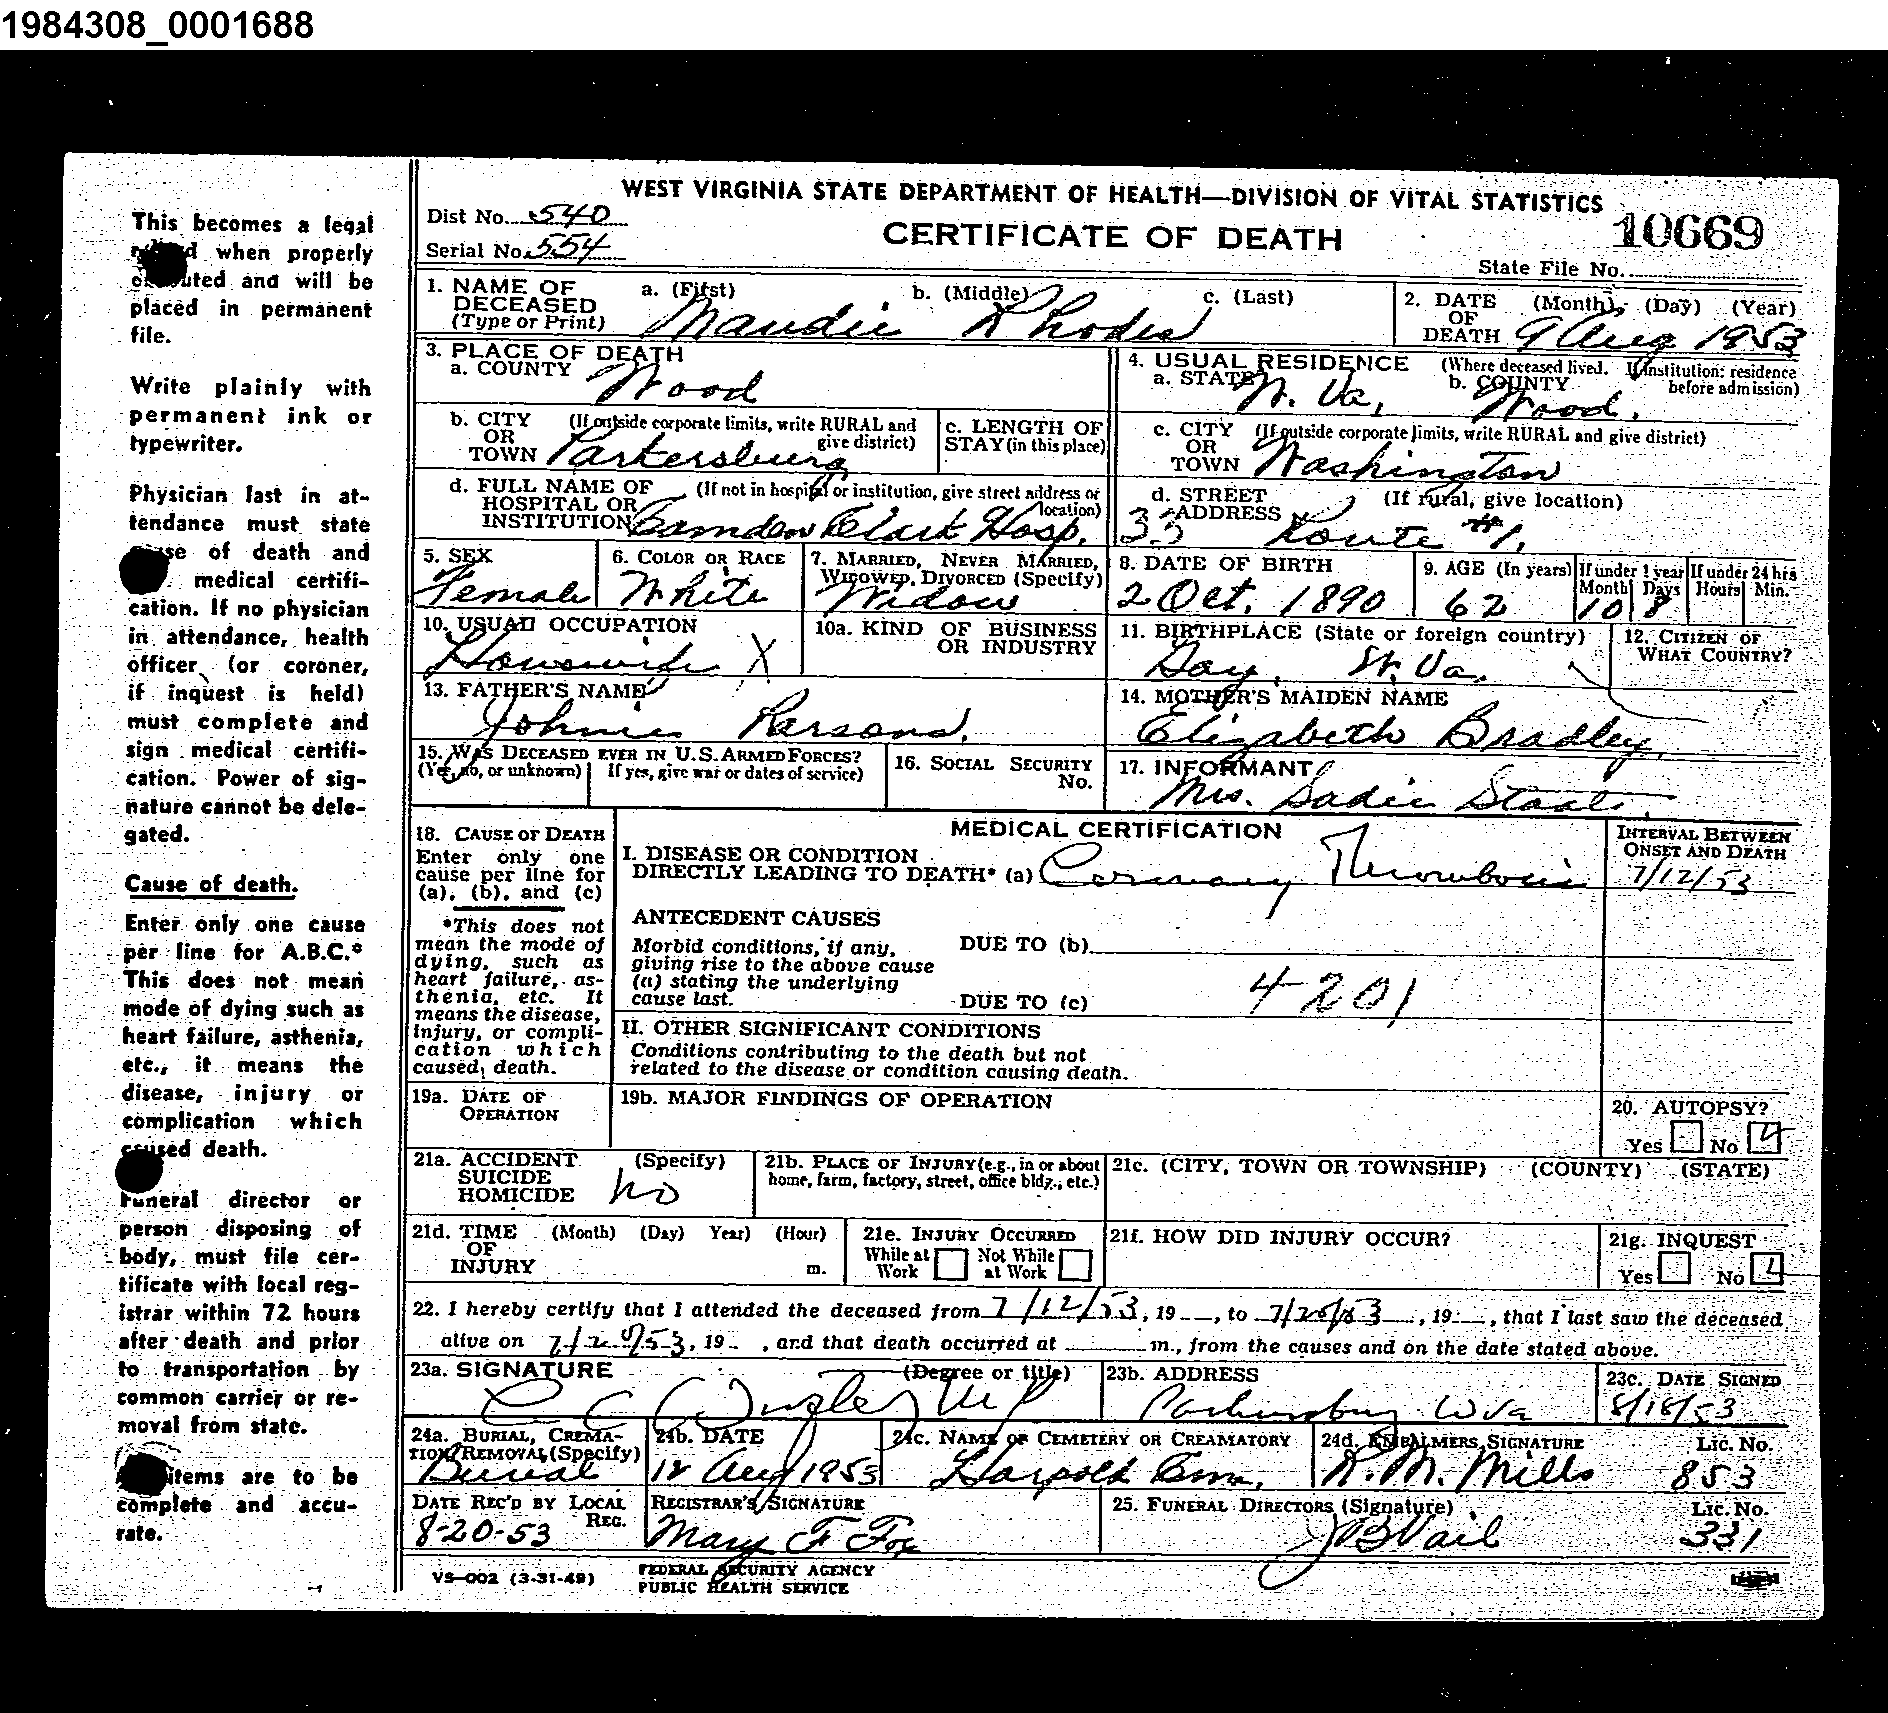 1984308_0001688
This becomes a legal
when properly
and will be
placed in permanent
file.
Write plainly with
permanent ink or
typewriter.
Physician last in at-
tendance must state
of death and
medical certifi-
cation. If no physician
in attendance, health
officer (or coroner,
if inquest is held)
must complete and
sign medical certifi-
cation. Power of sig-
nature cannot be dele-
gated.
Cause of death.
Enter only one cause
per line for A.B.C.*
This does not mean
mode of dying such as
heart failure, asthenia,
etc., it means the
disease, injury or
complication which
caused death.
Funeral director or
person disposing of
body, must file cer-
tificate with local reg-
istrar within 72 hours
after death and prior
to transportation by
common carrier or re-
moval from state.
items are to be
complete and accu-
rate.
WEST VIRGINIA STATE DEPARTMENT OF HEALTH—DIVISION OF VITAL STATISTICS
Dist No. 540
CERTIFICATE OF DEATH
10669
Serial No. 554
State File No.
1. NAME OF DECEASED (Type or Print) a. (First) b. (Middle) c. (Last)
Maudie Rhodes
2. DATE OF DEATH (Month) (Day) (Year)
9 Aug 1953
3. PLACE OF DEATH
a. COUNTY Wood
4. USUAL RESIDENCE (Where deceased lived. If institution: residence before admission)
a. STATE W. Va, b. COUNTY Wood.
b. CITY OR TOWN (If outside corporate limits, write RURAL and give district)
Parkersburg
c. LENGTH OF STAY (in this place)
c. CITY OR TOWN (If outside corporate limits, write RURAL and give district)
Washington
d. FULL NAME OF HOSPITAL OR INSTITUTION (If not in hospital or institution, give street address or location)
Camden Clark Hosp.
d. STREET ADDRESS (If rural, give location)
33 Route #1.
5. SEX
Female
6. COLOR OR RACE
White
7. MARRIED, NEVER MARRIED, WIDOWED, DIVORCED (Specify)
Widow
8. DATE OF BIRTH
2 Oct. 1890
9. AGE (In years)
62
If under 1 year Month Days
10 8
If under 24 hrs Hours Min.
10. USUAL OCCUPATION
Housewife X
10a. KIND OF BUSINESS OR INDUSTRY
11. BIRTHPLACE (State or foreign country)
Gay, W. Va.
12. CITIZEN OF WHAT COUNTRY?
13. FATHER'S NAME
Johnie Parsons.
14. MOTHER'S MAIDEN NAME
Elizabeth Bradley.
15. WAS DECEASED EVER IN U.S. ARMED FORCES?
(Yes, no, or unknown) If yes, give war or dates of service)
16. SOCIAL SECURITY No.
17. INFORMANT
Mrs. Sadie Staats.
18. CAUSE OF DEATH
Enter only one
cause per line for
(a), (b), and (c)
*This does not
mean the mode of
dying, such as
heart failure, as-
thenia, etc. It
means the disease,
injury, or compli-
cation which
caused death.
MEDICAL CERTIFICATION
I. DISEASE OR CONDITION
DIRECTLY LEADING TO DEATH* (a) Coronary Thrombosis
INTERVAL BETWEEN ONSET AND DEATH
7/12/53
ANTECEDENT CAUSES
Morbid conditions, if any,
giving rise to the above cause
(a) stating the underlying
cause last.
DUE TO (b)
DUE TO (c)
4201
II. OTHER SIGNIFICANT CONDITIONS
Conditions contributing to the death but not
related to the disease or condition causing death.
19a. DATE OF OPERATION
19b. MAJOR FINDINGS OF OPERATION
20. AUTOPSY?
Yes No
21a. ACCIDENT SUICIDE HOMICIDE (Specify)
No
21b. PLACE OF INJURY (e.g., in or about home, farm, factory, street, office bldg., etc.)
21c. (CITY, TOWN OR TOWNSHIP) (COUNTY) (STATE)
21d. TIME OF INJURY (Month) (Day) Year) (Hour) m.
21e. INJURY OCCURRED
While at Work Not While at Work
21f. HOW DID INJURY OCCUR?
21g. INQUEST
Yes No
22. I hereby certify that I attended the deceased from 7/12/53, 19 , to 7/20/53, 19 , that I last saw the deceased
alive on 7/20/53, 19 , and that death occurred at m., from the causes and on the date stated above.
23a. SIGNATURE (Degree or title)
MD
23b. ADDRESS
Parkersburg W Va
23c. DATE SIGNED
8/18/53
24a. BURIAL, CREMATION, REMOVAL (Specify)
Burial
24b. DATE
12 Aug 1953
24c. NAME OF CEMETERY OR CREAMATORY
Harpold Cem.
24d. EMBALMERS SIGNATURE Lic. No.
R. M. Mills 853
DATE REC'D BY LOCAL REG.
8-20-53
REGISTRAR'S SIGNATURE
Mary F Fox
25. FUNERAL DIRECTORS (Signature) Lic. No.
J B Vail 331
VS-002 (3-31-49)
FEDERAL SECURITY AGENCY
PUBLIC HEALTH SERVICE